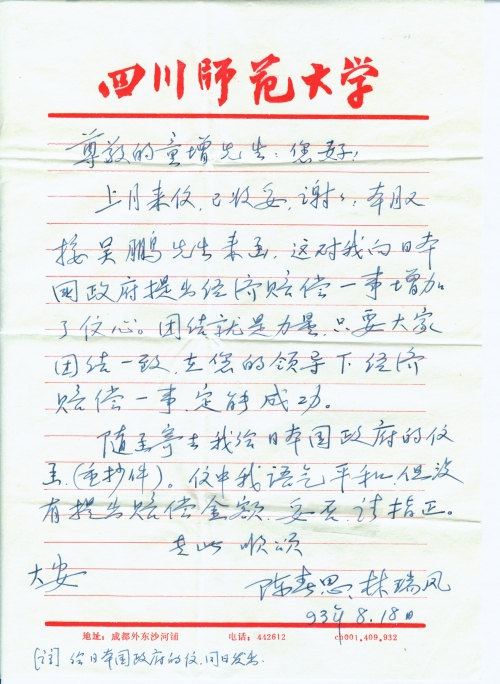 四川师范大学
尊敬的童增先生:您好!
上月来信,已收妥,谢谢,本月又
接吴鹏先生来函,这对我向日本
国政府提出经济赔偿一事增加
了信心。团结就是力量,只要大家
团结一致,在您的领导下经济
赔偿一事,定能成功。
随函寄去我给日本国政府的信
函,(重抄件)。信中我语气平和,但没
有提出赔偿金额,妥否,请指正。
专此 顺颂
大安
陈春思、林瑞风
93年8.18日
地址:成都外东沙河铺 电话:442612 cb001.409.932
[注]给日本国政府的信,同日发出.